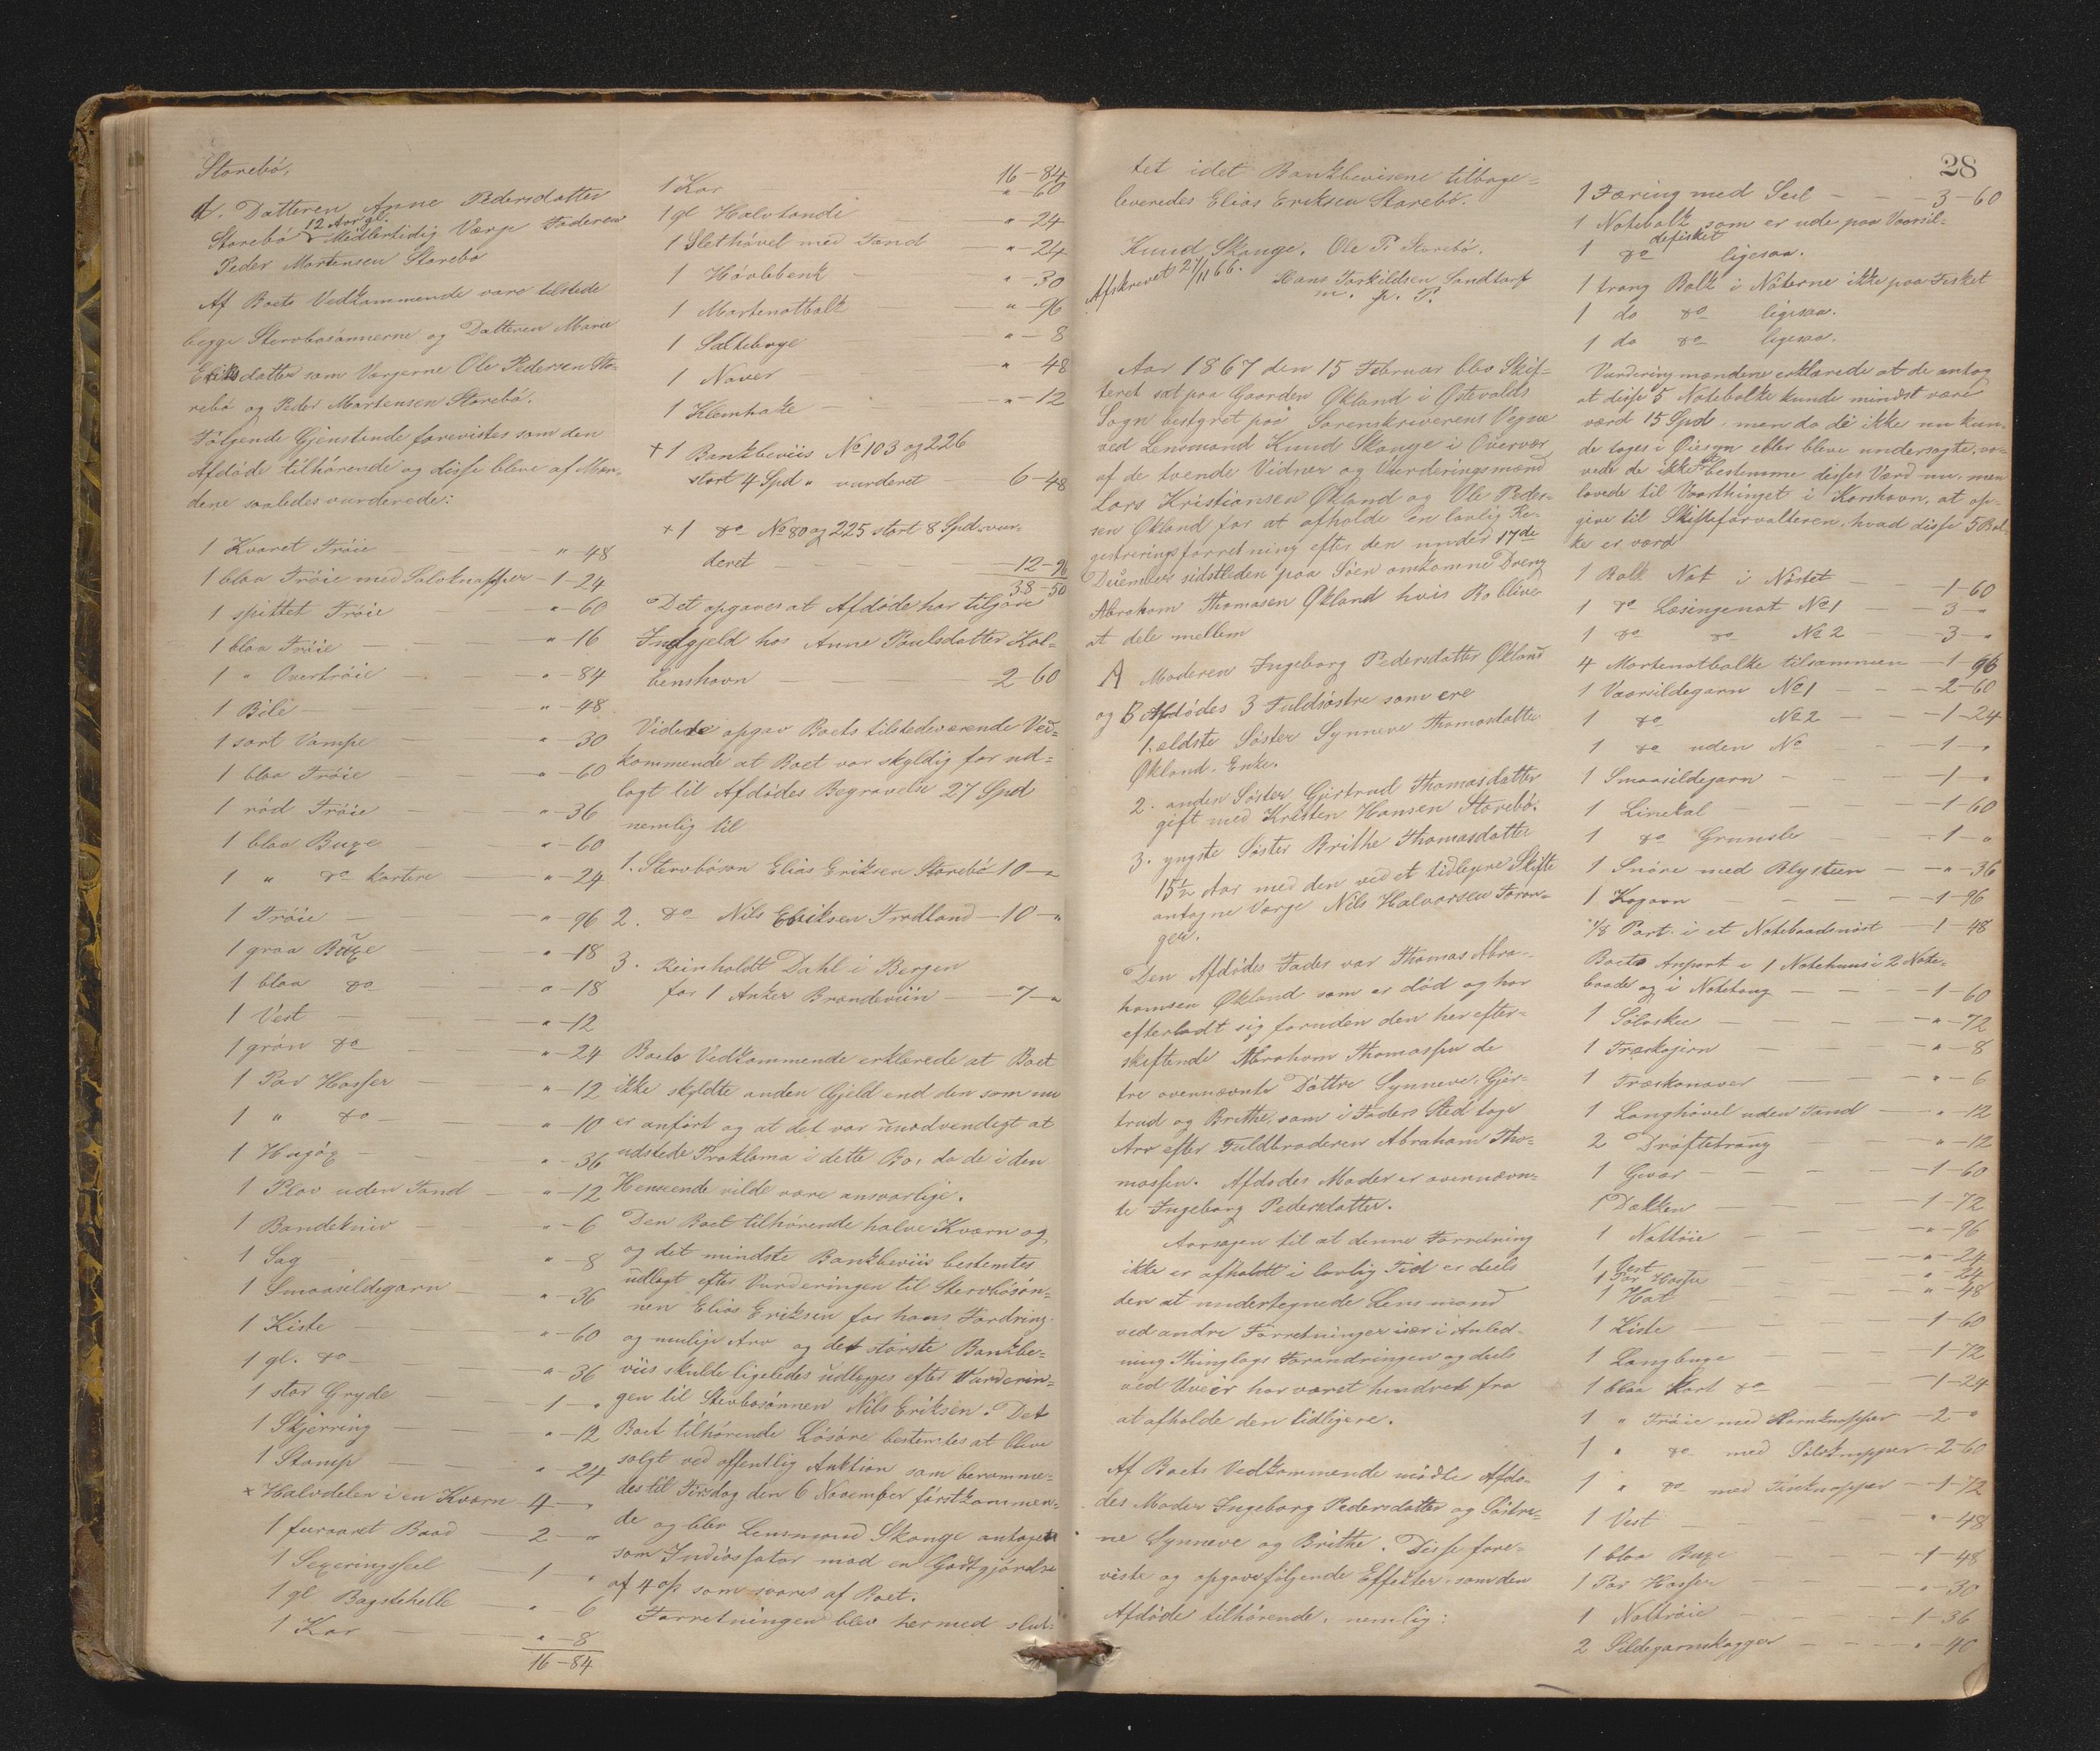 Storebö.
4. Datteren Anne Pedersdatter
Storebö 12 Aar gl. Midlertidig Værge Faderen
Peder Mortensen Storebö
Af Boets Vedkommende vare tilstede
begge Stervbosönnerne og Datteren Marie
Eriksdatter som Værgerne Ole Pedersen Sto-
rebö og Peder Mortensen Storebö.
Fölgende Gjenstande forevistes som den
Afdöde tilhörende og disse bleve af Mæn-
dene saaledes vurderede:
1 Kvaret Tröie " 48
1 blaa Tröie med Sölvknapper - 1-24
1 spittet Tröie "-60
1 blaa Tröie "-16
1 " Overtröie "-84
1 Bile "-48
1 sort Vampe "-30
1 blaa Tröie "-60
1 röd Tröie "-36
1 blaa Buxe "-60
1 " do kortere "-24
1 Tröie "-96
1 graa Buxe "-18
1 blaa do "-18
1 Vest "-12
1 grön do "-24
1 Par Hosser "-12
1 " do "-10
1 Hugöx "-36
1 Plov uden Tand "-12
1 Bandekniv "-6
1 Sag "-8
1 Smaasildegarn "-36
1 Kiste "-60
1 gl. do "-36
1 stor Gryde 1-"
1 Skjerring "-12
1 Stamp "-24
x Halvdelen i en Kværn 4-"
1 furaaret Baad 2-"
1 Sexeringsseil 1-"
1 gl Bagstehelle "-6
1 Kar "-8
16-84
16-84
1 Kar "-60
1 gl Halvtönde "-24
1 Slethövel med Tand "-24
1 Hövlebenk "-30
1 Mortenotbalk "-96
1 Saltebøye "-8
1 Naver "-48
1 Klemhake "-12
+ 1 Bankbeviis No 103 og 226
stort 4 Spd " vurderet 6-48
+ 1 do No 80 og 225 stort 8 Spd. vur-
deret 12-96
38-50
Det opgaves at Afdöde har tilgode
Indgjeld hos Anne Poulsdatter Kol-
benshavn 2 60
Videre opgav Boets tilstedeværende Ved-
kommende at Boet var skyldig for ud-
lagt til Afdödes Begravelse 27 Spd
nemlig til
1. Stervbösön Elias Eriksen Storebö 10-"
2. do Nils Eriksen Trodland - 10-"
3. Reinholdt Dahl i Bergen
for 1 Anker Brændeviin - 7-"
Boets Vedkommende erklærede at Boet
ikke skyldte anden Gjeld end den som nu
er anfört og at det var unödvendigt at
udstede Proklama i dette Bo, da de i den
Henseende vilde være ansvarlige.
Den Boet tilhörende halve Kværn og
og det mindste Bankbeviis bestemtes
udlagt efter Vurderingen til Stervbösön-
nen Elias Eriksen for hans Fordring
og mulige Arv og det störste Bankbe-
viis skulde ligeledes udlægges efter Vurderin-
gen til Stervbosönnen Nils Eriksen. Det
Boet tilhörende Lösöre bestemtes at blive
solgt ved offentlig Auktion som beramme-
des til Tirsdag den 6 November förstkommen-
de og blev Lensmand Skauge antaget
som Indkasator mod en Godtgjörelse
af 4 op som svares af Boet.
Forretningen blev hermed slut-
28
tet idet Bankbevisene tilbage-
leveredes Elias Eriksen Storebö.
Knud Skauge. Ole P. Storebö.
Afskrevet 27/11 66. Hans Torkildsen Sandtorf
m. p. P.
Aar 1867 den 15 Februar blev Skif-
teret sat paa Gaarden Økland i Østevolds
Sogn bestyret paa Sorenskriverens Vegne
ved Lensmand Knud Skauge i Overvær
af de tvende Vidner og Vurderingsmænd
Lars Kristiansen Økland og Ole Peder-
sen Økland for at afholde en lovlig Re-
gistreringsforretning efter den under 17de
December sidstleden paa Söen omkomne Dreng
Abraham Thomasen Økland hvis Bo bliver
at dele mellem
A Moderen Ingeborg Pedersdatter Økland
og B Afdödes 3 Fuldsöstre som ere
1. ældste Söster Synneve Thomasdatter
Økland. Enke.
2. anden Söster Gjertrud Thomasdatter
gift med Kristen Hansen Storebö.
3. yngste Söster Brithe Thomasdatter
15½ Aar med den ved et tidligere Skifte
antagne Værge Nils Halvorsen Foran-
ger.
Den Afdödes Fader var Thomas Abra-
hamsen Økland som er död og har
efterladt sig foruden den her efter-
skiftende Abraham Thomassen de
tre ovennævnte Döttre Synneve, Gjer-
trud og Brithe, som i Faders Sted tage
Arv efter Fuldbroderen Abraham Tho-
massen. Afdödes Moder er ovennævn-
te Ingeborg Pedersdatter.
Aarsagen til at denne Forretning
ikke er afholdt i lovlig Tid er deels
den at undertegnede Lensmand
ved andre Forretninger især i Anled-
ning Thinglags Forandringen og deels
ved Uveir har været hindret fra
at afholde den tidligere.
Af Boets Vedkommende mödte Afdö-
des Moder Ingeborg Pedersdatter og Söstre-
ne Synneve og Brithe. Disse fore-
viste og opgave fölgende Effekter som den
Afdöde tilhörende, nemlig:
1 Færing med Seil - 3-60
1 Notebalk som er ude paa Vaarsil-
defisket
1 do ligesaa.
1 trang Balk i Nöterne ikke paa Fisket
1 do do ligesaa.
1 do do ligesaa.
Vurderingmændene erklærede at de antog
at disse 5 Notebalke kunde mindst være
værd 15 Spd. men da de ikke nu kun-
de tages i Öiesyn eller bleve undersøgte, vo-
vede de ikke at bestemme disses Værd nu, men
lovede til Vaarthinget i Korshavn, at op-
give til Skifteforvalteren, hvad disse 5 Bal-
ke er værd
1 Balk Not i Nöstet 1-60
1 do Læsingenot No 1 3-"
1 do do No 2 3-"
4 Mortenotbalke tilsammen 1 96
1 Vaarsildegarn No 1 2-60
1 do No 2 1-24
1 do uden No 1-"
1 Smaasildegarn 1-"
1 Linekal 1-60
1 do Grunsle 1-"
1 Snöre med Blysteen "-36
1 Kagovn 1-96
1/8 Part i et Notebaadenöst 1-48
Boets Anpart i 1 Notehuus i 2 Note-
baade og i Notetoug 1-60
1 Sölvskee "-72
1 Træskojern "-8
1 Træskonaver "-6
1 Langhövel uden Tand "-12
2 Dröftetraug "-12
1 Gevær 1-60
1 Dækken 1-72
1 Nattöie "-96
1 Vest "-24
1 Par Hosser "-24
1 Hat "-48
1 Kiste 1-60
1 Langbuxe 1-72
1 blaa kort do 1-24
1 " Tröie med Hornknapper 2-"
1 " do med Sölvknapper 2-60
1 " do med Tinknapper 1-72
1 Vest "-48
1 blaa Buxe 1-48
1 Par Hosser "-30
1 Nattröie 1-36
2 Sildegarnskagger "-40